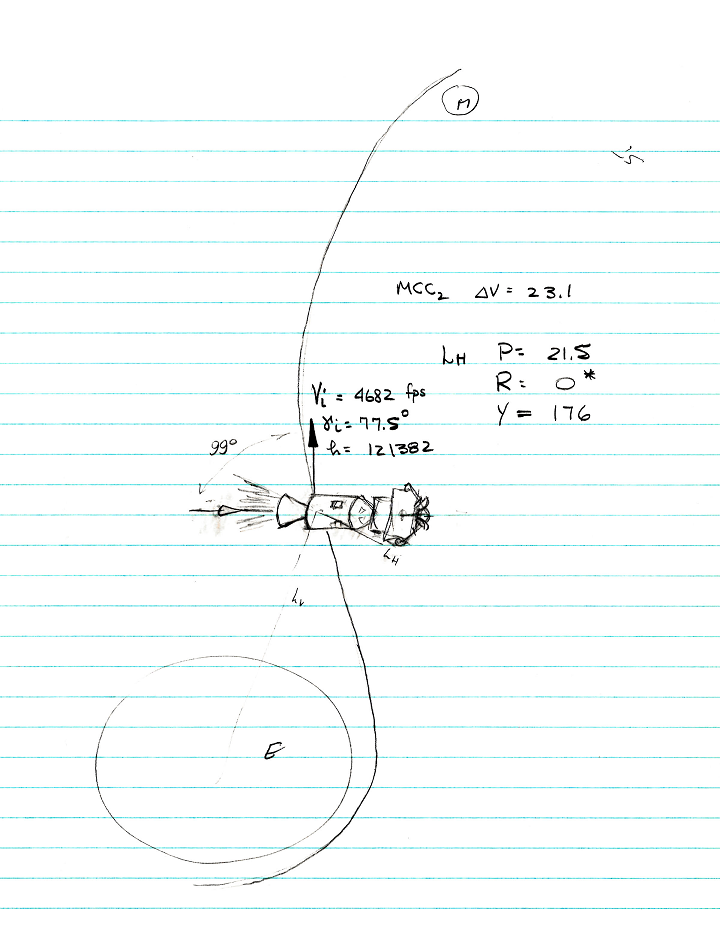 M
MCC₂ ΔV = 23.1
LH P= 21.5
R: 0*
Y = 176
Vi = 4682 fps
γi = 77.5°
h = 121382
99°
LH
LV
E